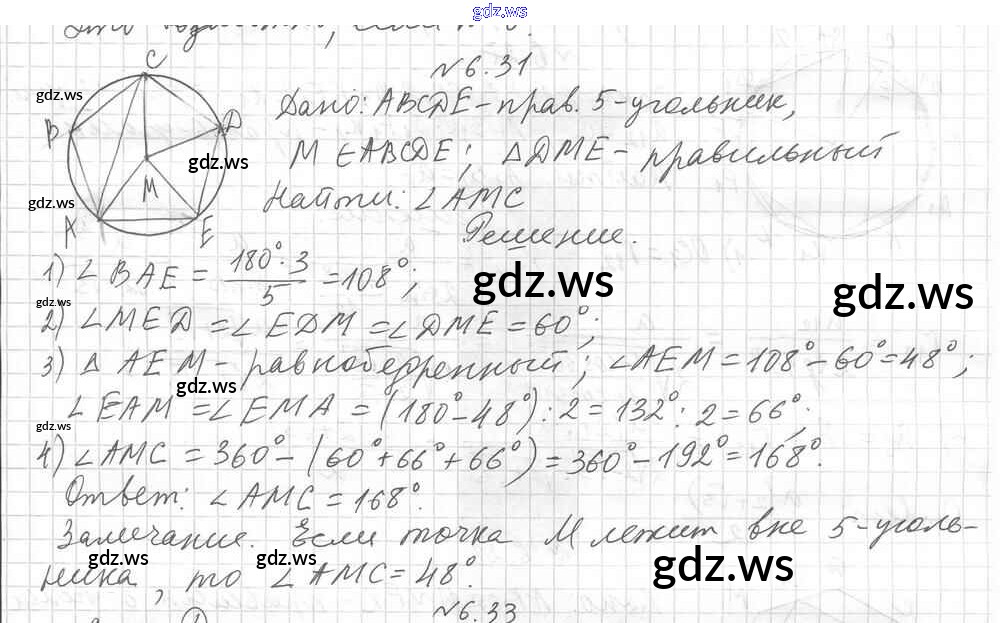 gdz.ws
№ 6.31
C
gdz.ws
B
D
gdz.ws
gdz.ws
M
A
E
Дано: ABCDE - прав. 5-угольник,
M ∈ ABCDE; △DME - правильный
Найти: ∠AMC
Решение.
1) ∠BAE = 180°·3/5 = 108°;
gdz.ws
gdz.ws
gdz.ws
2) ∠MED = ∠EDM = ∠DME = 60°;
3) △AEM - равнобедренный; ∠AEM = 108° - 60° = 48°;
gdz.ws
∠EAM = ∠EMA = (180° - 48°) : 2 = 132° : 2 = 66°;
gdz.ws
4) ∠AMC = 360° - (60° + 66° + 66°) = 360° - 192° = 168°.
Ответ: ∠AMC = 168°.
Замечание. Если точка M лежит вне 5-уголь-
gdz.ws
gdz.ws
gdz.ws
ника, то ∠AMC = 48°.
№ 6.33